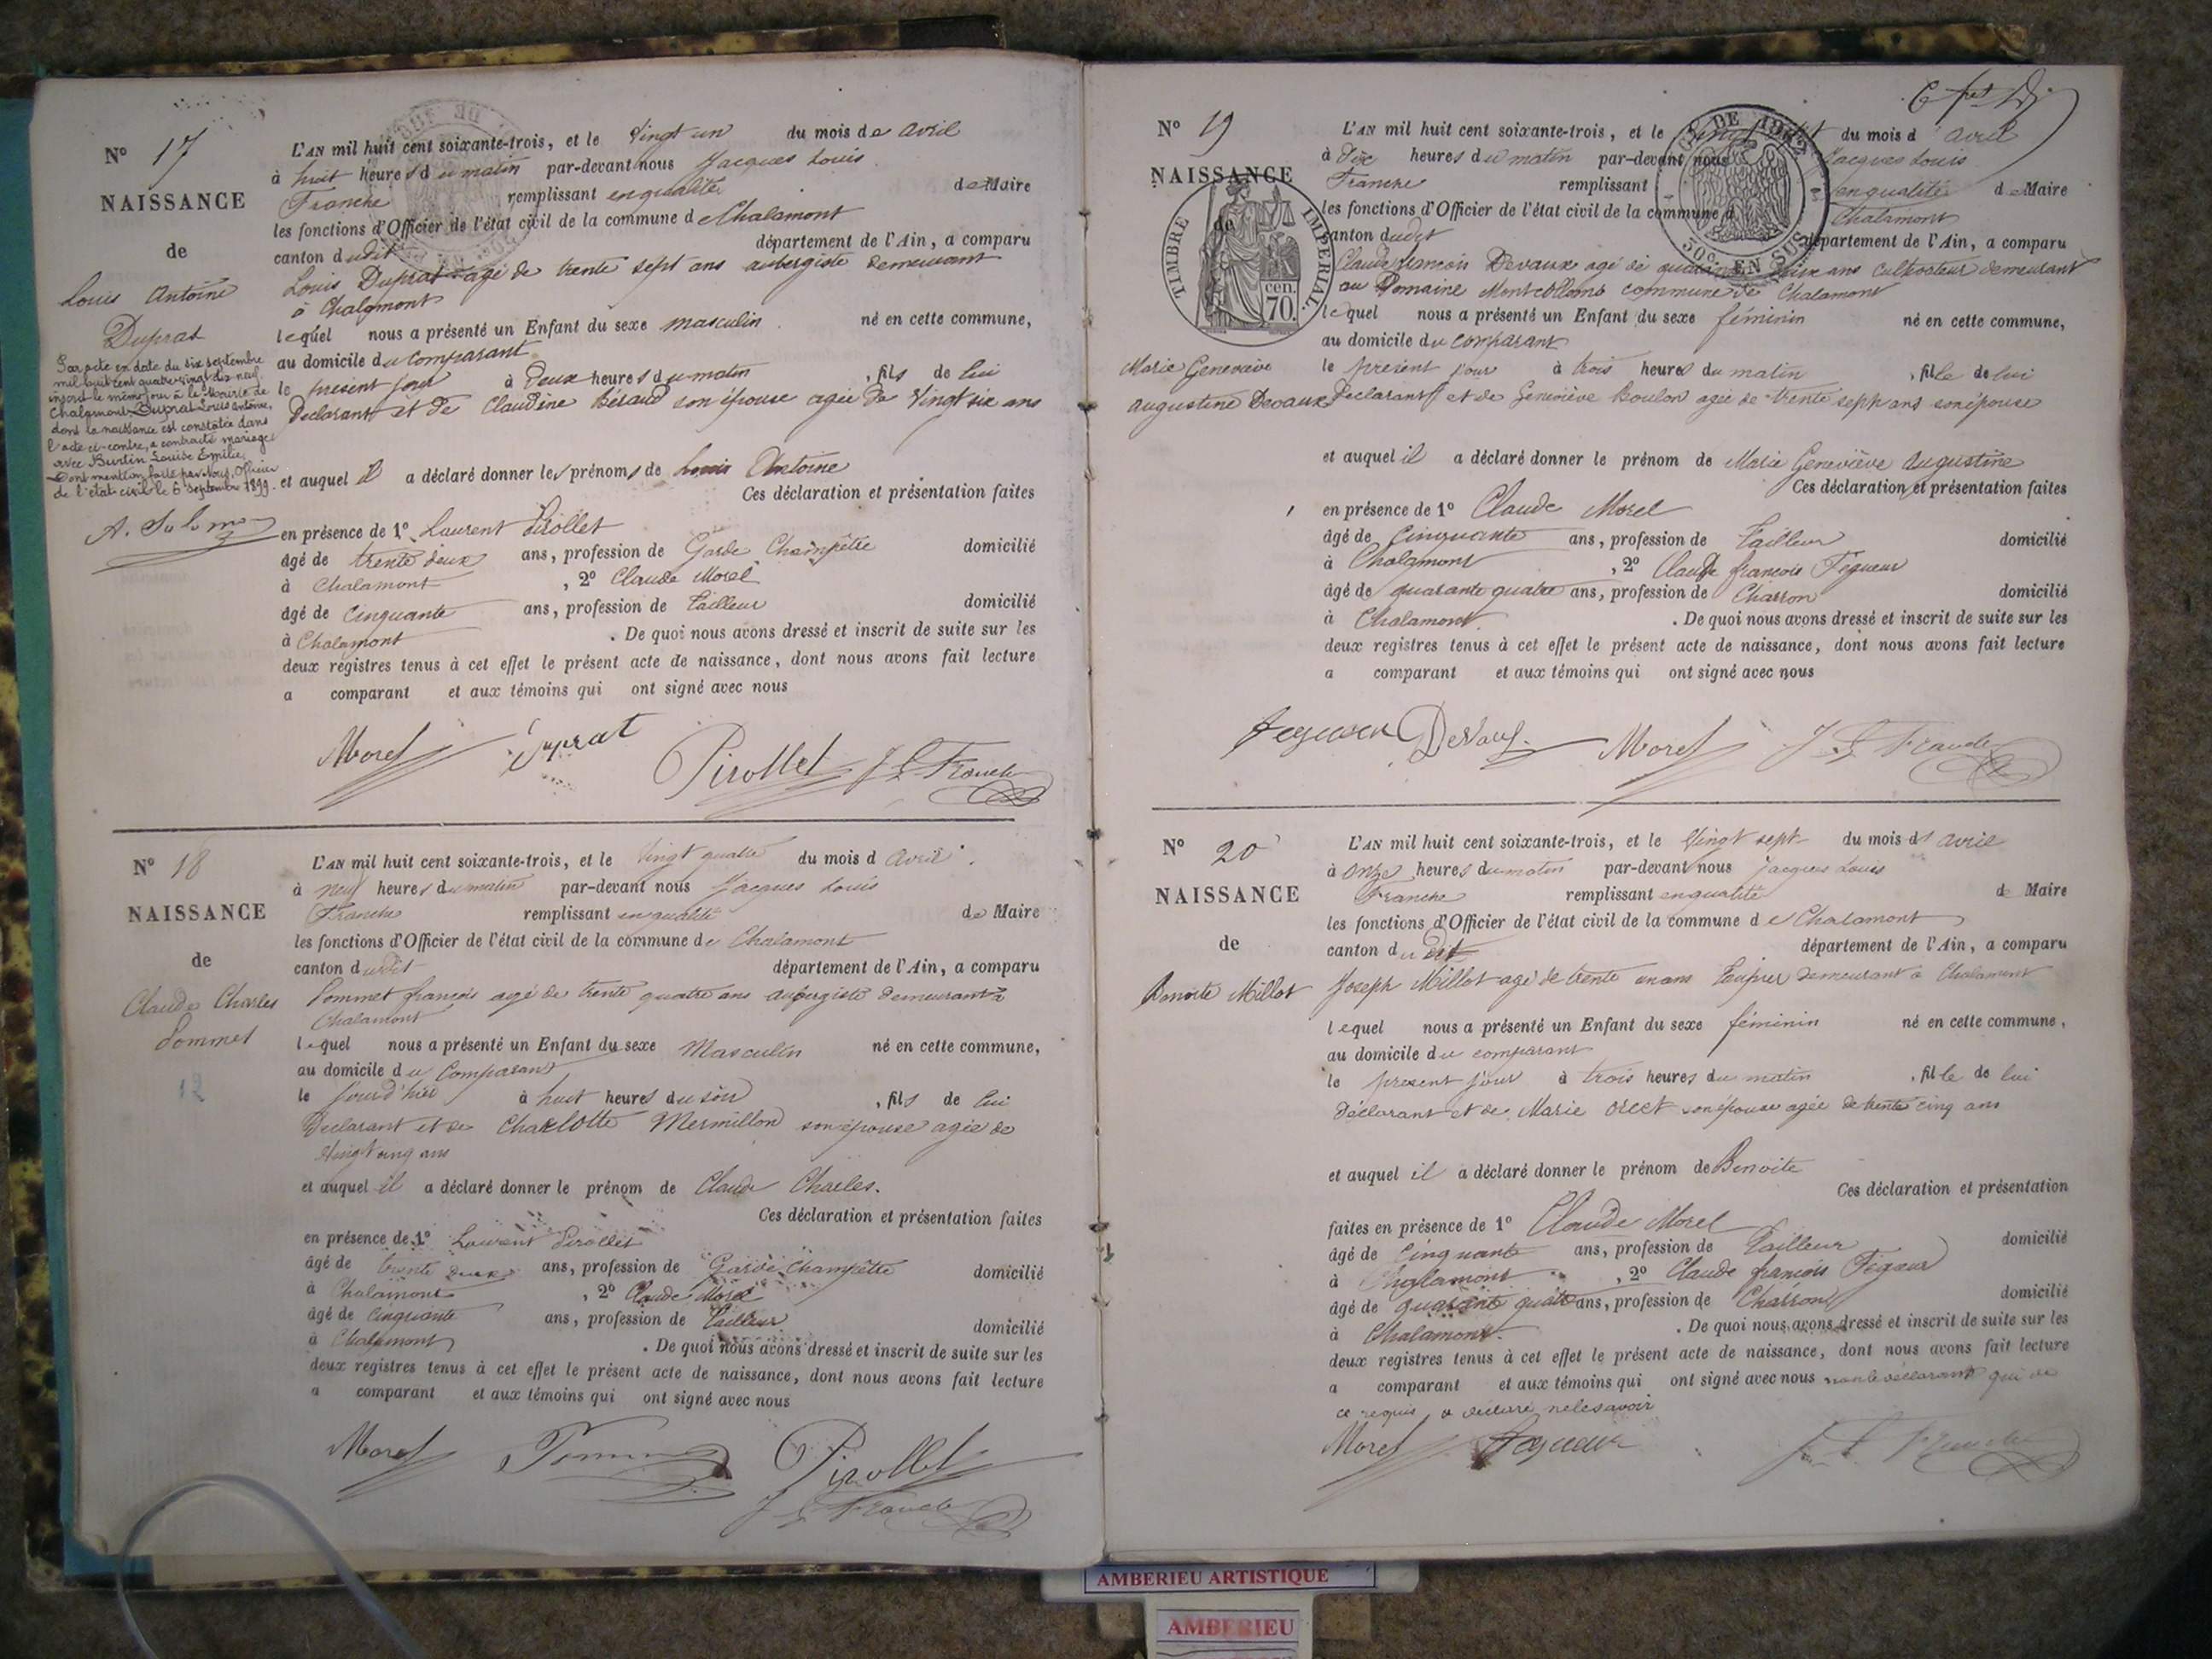 N° 17
NAISSANCE
de
Louis Antoine
Duprat
Par acte en date du six septembre
mil huit cent quatre-vingt dix-neuf
inscrit le même jour à la Mairie de
Chalamont Duprat Louis Antoine,
dont la naissance est constatée dans
l'acte ci-contre, a contracté mariage
avec Burtin Louise Emilie,
Dont mention faite par Nous, Officier
de l'état civil le 6 septembre 1899.
L'AN mil huit cent soixante-trois, et le vingt un du mois de avril
à huit heures du matin par-devant nous Jacques Louis
Franche remplissant en qualité de Maire
les fonctions d'Officier de l'état civil de la commune de Chalamont
canton dudit département de l'Ain, a comparu
Louis Duprat agé de trente sept ans aubergiste demeurant
à Chalamont
lequel nous a présenté un Enfant du sexe masculin né en cette commune,
au domicile du comparant
le present jour à deux heures du matin, fils de lui
Declarant et de Claudine Béraud son épouse agée de vingt six ans
et auquel il a déclaré donner les prénoms de Louis Antoine
Ces déclaration et présentation faites
en présence de 1° Laurent Pirollet
âgé de trente deux ans, profession de Garde Champêtre domicilié
à Chalamont, 2° Claude Morel
âgé de cinquante ans, profession de Tailleur domicilié
à Chalamont. De quoi nous avons dressé et inscrit de suite sur les
deux registres tenus à cet effet le présent acte de naissance, dont nous avons fait lecture
a comparant et aux témoins qui ont signé avec nous
Morel Duprat Pirollet J L Franche
N° 18
NAISSANCE
de
Claude Charles
Pommet
12
L'AN mil huit cent soixante-trois, et le vingt quatre du mois d avril
à neuf heures du matin par-devant nous Jacques Louis
Franche remplissant en qualité de Maire
les fonctions d'Officier de l'état civil de la commune de Chalamont
canton dudit département de l'Ain, a comparu
Pommet françois agé de trente quatre ans aubergiste demeurant à
Chalamont
lequel nous a présenté un Enfant du sexe Masculin né en cette commune,
au domicile du Comparant
le jour d'hier à huit heures du soir, fils de lui
Declarant et de Charlotte Mermillon son épouse agée de
vingt cinq ans
et auquel il a déclaré donner le prénom de Claude Charles.
Ces déclaration et présentation faites
en présence de 1° Laurent Pirollet
âgé de trente deux ans, profession de Garde Champêtre domicilié
à Chalamont, 2° Claude Morel
âgé de cinquante ans, profession de Tailleur domicilié
à Chalamont. De quoi nous avons dressé et inscrit de suite sur les
deux registres tenus à cet effet le présent acte de naissance, dont nous avons fait lecture
a comparant et aux témoins qui ont signé avec nous
Morel Pommet Pirollet
J L Franche
N° 19
NAISSANCE
de
TIMBRE IMPÉRIAL
cen. 70.
50 c. EN SUS
Marie Genevieve
augustine Devaux
L'AN mil huit cent soixante-trois, et le vingt sept du mois d avril
à dix heures du matin par-devant nous Jacques Louis
Franche remplissant en qualité de Maire
les fonctions d'Officier de l'état civil de la commune d Chalamont
canton dudit département de l'Ain, a comparu
Claude françois Devaux agé de ans cultivateur demeurant
au Domaine commune de Chalamont
lequel nous a présenté un Enfant du sexe féminin né en cette commune,
au domicile du comparant
le present jour à trois heures du matin, fille de lui
Declarant et de Geneviève Boulon agée de trente sept ans son épouse
et auquel il a déclaré donner le prénom de Marie Geneviève augustine
Ces déclaration et présentation faites
en présence de 1° Claude Morel
âgé de cinquante ans, profession de Tailleur domicilié
à Chalamont, 2° Claude françois Fegueur
âgé de quarante quatre ans, profession de Charron domicilié
à Chalamont. De quoi nous avons dressé et inscrit de suite sur les
deux registres tenus à cet effet le présent acte de naissance, dont nous avons fait lecture
a comparant et aux témoins qui ont signé avec nous
Fegueur Devaux Morel J L Franche
N° 20
NAISSANCE
de
Benoite Millot
L'AN mil huit cent soixante-trois, et le vingt sept du mois d avril
à onze heures du matin par-devant nous Jacques Louis
Franche remplissant en qualité de Maire
les fonctions d'Officier de l'état civil de la commune de Chalamont
canton dudit département de l'Ain, a comparu
Joseph Millot agé de trente un ans demeurant à Chalamont
lequel nous a présenté un Enfant du sexe féminin né en cette commune,
au domicile du comparant
le present jour à trois heures du matin, fille de lui
déclarant et de Marie son épouse agée de trente cinq ans
et auquel il a déclaré donner le prénom de Benoite
Ces déclaration et présentation
faites en présence de 1° Claude Morel
âgé de cinquante ans, profession de Tailleur domicilié
à Chalamont, 2° Claude françois Fegueur
âgé de quarante quatre ans, profession de Charron domicilié
à Chalamont. De quoi nous avons dressé et inscrit de suite sur les
deux registres tenus à cet effet le présent acte de naissance, dont nous avons fait lecture
a comparant et aux témoins qui ont signé avec nous non le déclarant qui de
ce requis a déclaré ne le savoir
Morel Fegueur J L Franche
AMBERIEU ARTISTIQUE
AMBERIEU